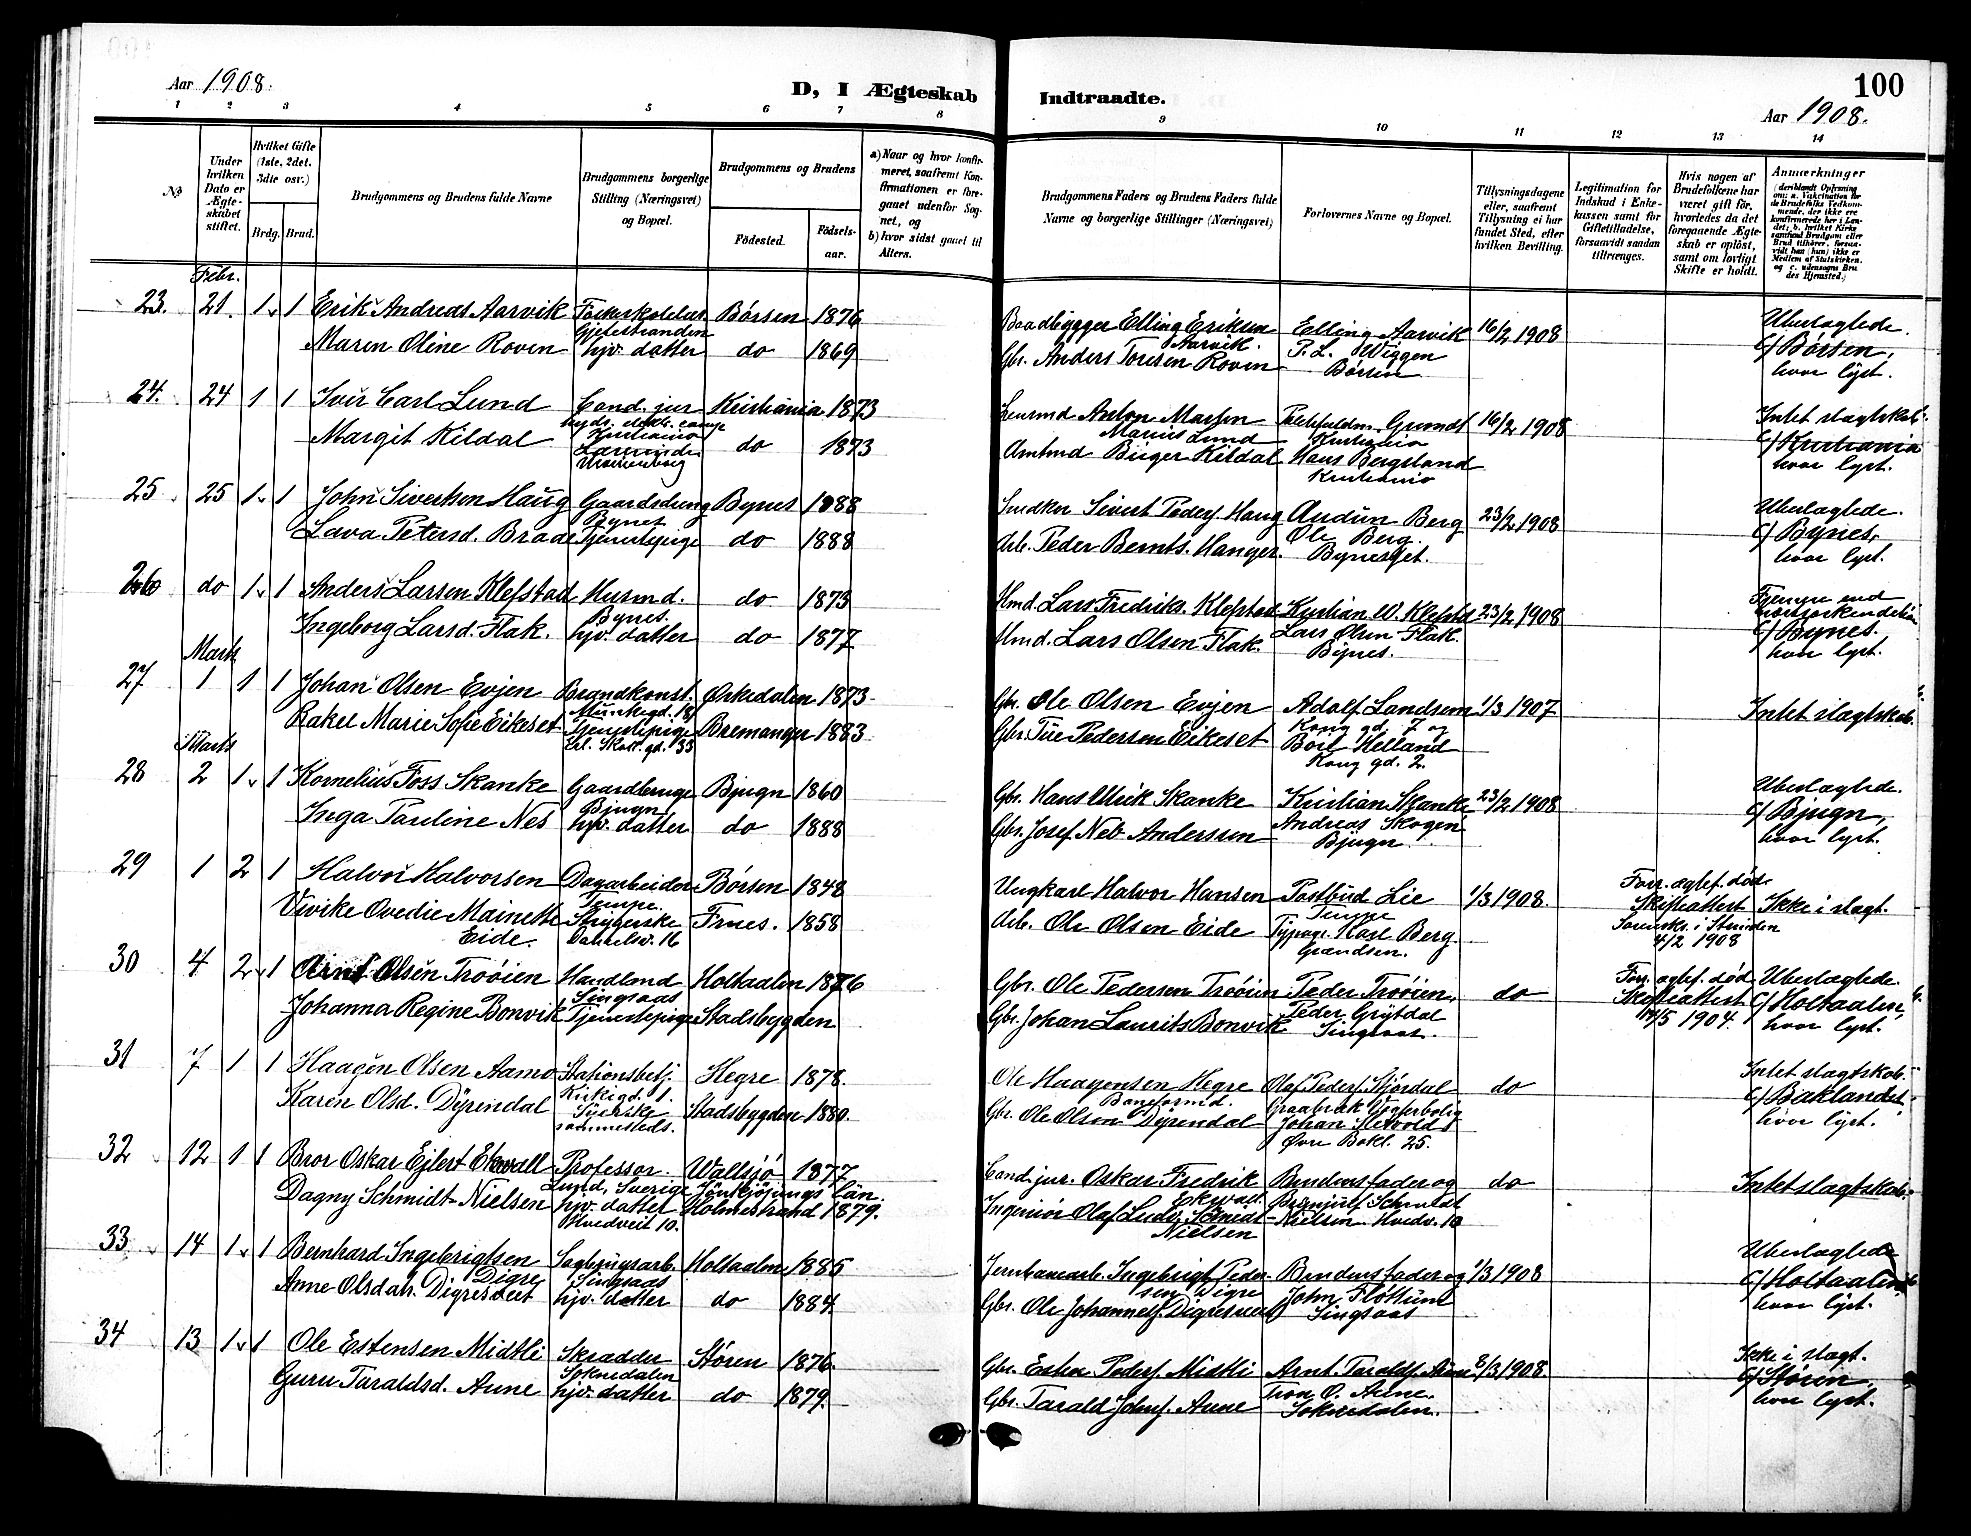 Aar 1908.
D, I Ægteskab
Indtraadte.
100
Aar 1908.
1 2 3 4 5 6 7 8 9 10 11 12 13 14
No
Under hvilken Dato er Ægteskabet stiftet.
Hvilket Gifte (1ste, 2det. 3die osv.)
Brdg. Brud.
Brudgommens og Brudens fulde Navne
Brudgommens borgerlige Stilling (Næringsvei) og Bopæl.
Brudgommens og Brudens
Fødested.
Fødselsaar.
a) Naar og hvor konfirmeret, saafremt Konfirmationen er foregaaet udenfor Sognet, og
b) hvor sidst gaaet til Alters.
Brudgommens Faders og Brudens Faders fulde Navne og borgerlige Stillinger (Næringsvei)
Forlovernes Navne og Bopæl.
Tillysningsdagene eller, saafremt Tillysning ei har fundet Sted, efter hvilken Bevilling.
Legitimation for Indskud i Enkekassen samt for Giftetilladelse, forsaavidt saadan tiltrænges.
Hvis nogen af Brudefolkene har været gift før, hvorledes da det foregaaende Ægteskab er opløst, samt om lovligt Skifte er holdt.
Anmærkninger
(deriblandt Oplysning om: a. Vakcination for de Brudefolks Vedkommende, der ikke ere konfirmerede her i Landet; b. hvilket Kirkesamfund Brudgom eller Brud tilhører, forsaavidt han (hun) ikke er Medlem af Statskirken, og c. udensogns Brudes Hjemsted.)
Febr.
23. 21. 1 1 Erik Andreas Aarvik Børsen 1876 Baadbygger Elling Eriksen Aarvik. Elling Aarvik 16/2 1908 Ubeslægtede.
Maren Oline Roven hjv. datter do 1869 Gbr. Anders Toresen Roven P. L. Wiggen Børsen c/ Børsen, hvor lyst.
24. 24 1 1 Iver Carl Lund Cand. jur Kristiania 1873 Lensmd Anton Marius Lund Grundt Kristiania 16/2 1908 Intet slagtskab.
Margit Kildal Kristiania Lærerinde do 1873 Amtmd Birger Kildal Hans Bergsland Kristiania c/ Kristiania hvor lyst.
25 25 1 1 John Sivertsen Haug Gaardsdreng Bynes 1888 Smdkar Sivert Peders. Haug Audun Berg 23/2 1908 Ubeslægtede.
Lava Petersd. Braa Bynes Tjenestepige do 1888 Arb. Peder Bernts. Hanger. Ole Berg. Bynesset. c/ Bynes, hvor lyst.
26 do 1 1 Anders Larsen Klefstad Husmd. do 1873 Hmd. Lars Fredriks. Klefstad Kristian W. Klefstd 23/2 1908 Fjernere end
Ingeborg Larsd. Flak. Bynes. hjv. datter do 1877 Hmd. Lars Olsen Flak. Lars Olsen Flak. Bynes. c/ Bynes. hvor lyst.
Marts
27 1 1 1 Johan Olsen Evjen Brandkonst. Orkedalen 1873 Gbr. Ole Olsen Evjen Adolf Landsem 1/3 1907 Intet slagtskab.
Rakel Marie Sofie Eikeset Munkegd. 18 Tjenestepige Erl. Skak. gd. 33 Bremanger 1883 Gbr. Peder Pedersen Eikeset Kong. gd. 7 og Boil Helland Kong gd. 2.
Marts
28 2 1 1 Kornelius Foss Skanke Gaardbruger Bjugn 1860 Gbr. Hans Ulrik Skanke Kristian Skanke 23/2 1908 Ubeslægtede.
Inga Pauline Nes Bjugn hjv. datter do 1888 Gbr. Josef Neb Anderssen Andreas Skogen Bjugn c/ Bjugn, hvor lyst.
29 1 2 1 Halvor Halvorsen Dagarbeider Børsen 1848 Ungkarl Halvor Hansen Postbud Lie 1/3 1908. Forr. ægtef. død. Ikke i slagt.
Vivike Ovedie Mainette Eide. Tempe. Strygerske 16 Fnes. 1858 Arb. Ole Olsen Eide Tempe Typogr. Karl Berg Grandsen. Skifteattest Sorensk. i Strinden 4/2 1908
30 4 2 1 Arnt Olsen Troøien Handlend Holtaalen 1876 Gbr. Ole Pedersen Troøien Peder Troøien. do Forr. ægtef. død. Ubeslægtede.
Johanna Regine Bonvik Singsaas Tjenestepige Stadsbygden Gbr. Johan Laurits Bonvik Peder Grytdal Singsaas. Skifteattest 14/5 1904. c/ Holtaalen, hvor lyst.
31 7 1 1 Haagen Olsen Aamo Stationsbetj. Hegre 1878. Ole Haagensen Hegre Olaf Peders. Stjørdal do Intet slagtskab.
Karen Olsd. Dyrendal Kirkegd. 1. Syerske sammesteds. Stadsbygden 1880. Baneformd. Gbr. Ole Olsen Dyrendal Graabræk Vogterbolig Johan Hetvold Øvre Bakl. 25. c/ Baklandet, hvor lyst.
32 12 1 1 Bror Oskar Ejlert Ekwall Professor Wallsjö 1877 Cand. jur. Oskar Fredrik Ekwall Brudens fader og do Intet slagtskab.
Dagny Schmidt-Nielsen Lund, Sverige hjv. datter Hvedveit 10. Jönköpings län. Holmestrand 1879. Ingeniør Olaf Ludv. Schmidt-Nielsen Brynjulf Schmidt Nielsen. Hvedv. 10
33 14 1 1 Bernhard Ingebrigtsen Digre Sagbrugsarb. Holtaalen 1885 Jernbanearb. Ingebrigt Pedersen Digre Brudens fader og 1/3 1908 Ubeslægtede
Anne Olsdatr. Digresveet Singsaas hjv. datter do 1884. Gbr. Ole Johannes. Digresveet John Fløttum Singsaas c/ Holtaalen hvor lyst.
34 13 1 1 Ole Estensen Midtli Skrædder Støren 1876. Gbr. Esten Peders. Midtli Arnt Taralds. Aune 8/3 1908. Ikke i slagt.
Guru Taraldsd. Aune Soknedalen hjv. datter do 1879. Gbr. Tarald Johns. Aune Tron O. Aune. Soknedalen. c/ Støren, hvor lyst.